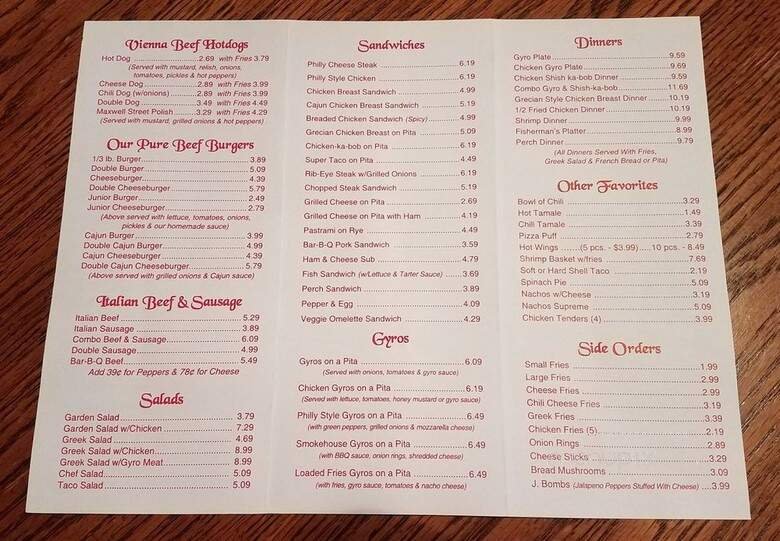 Vienna Beef Hotdogs
Hot Dog ....2.69 with Fries 3.79
(Served with mustard, relish, onions,
tomatoes, pickles & hot peppers)
Cheese Dog....2.89 with Fries 3.99
Chili Dog (w/onions)....2.89 with Fries 3.99
Double Dog....3.49 with Fries 4.49
Maxwell Street Polish....3.29 with Fries 4.29
(Served with mustard, grilled onions & hot peppers)
Our Pure Beef Burgers
1/3 lb. Burger....3.89
Double Burger....5.09
Cheeseburger....4.39
Double Cheeseburger....5.79
Junior Burger....2.49
Junior Cheeseburger....2.79
(Above served with lettuce, tomatoes, onions,
pickles & our homemade sauce)
Cajun Burger....3.99
Double Cajun Burger....4.99
Cajun Cheeseburger....4.39
Double Cajun Cheeseburger....5.79
(Above served with grilled onions & Cajun sauce)
Italian Beef & Sausage
Italian Beef....5.29
Italian Sausage....3.89
Combo Beef & Sausage....6.09
Double Sausage....4.99
Bar-B-Q Beef....5.49
Add 39¢ for Peppers & 78¢ for Cheese
Salads
Garden Salad....3.79
Garden Salad w/Chicken....7.29
Greek Salad....4.69
Greek Salad w/Chicken....8.99
Greek Salad w/Gyro Meat....8.99
Chef Salad....5.09
Taco Salad....5.09
Sandwiches
Philly Cheese Steak....6.19
Philly Style Chicken....6.19
Chicken Breast Sandwich....4.99
Cajun Chicken Breast Sandwich....5.19
Breaded Chicken Sandwich (Spicy)....4.99
Grecian Chicken Breast on Pita....5.09
Chicken-ka-bob on Pita....4.99
Super Taco on Pita....4.49
Rib-Eye Steak w/Grilled Onions....6.19
Chopped Steak Sandwich....5.19
Grilled Cheese on Pita....2.69
Grilled Cheese on Pita with Ham....4.19
Pastrami on Rye....4.49
Bar-B-Q Pork Sandwich....3.59
Ham & Cheese Sub....4.79
Fish Sandwich (w/Lettuce & Tarter Sauce)....3.69
Perch Sandwich....3.89
Pepper & Egg....4.09
Veggie Omelette Sandwich....4.29
Gyros
Gyros on a Pita....6.09
(Served with onions, tomatoes & gyro sauce)
Chicken Gyros on a Pita....6.19
(Served with lettuce, tomatoes, honey mustard or gyro sauce)
Philly Style Gyros on a Pita....6.49
(with green peppers, grilled onions & mozzarella cheese)
Smokehouse Gyros on a Pita....6.49
(with BBQ sauce, onion rings, shredded cheese)
Loaded Fried Gyros on a Pita....6.49
(with fries, gyro sauce, tomatoes & nacho cheese)
Dinners
Gyro Plate....9.59
Chicken Gyro Plate....9.69
Chicken Shish ka-bob Dinner....9.59
Combo Gyro & Shish-ka-bob....11.69
Grecian Style Chicken Breast Dinner....10.19
1/2 Fried Chicken Dinner....10.19
Shrimp Dinner....9.99
Fisherman's Platter....8.99
Perch Dinner....9.79
(All Dinners Served With Fries,
Greek Salad & French Bread or Pita)
Other Favorites
Bowl of Chili....3.29
Hot Tamale....1.49
Chili Tamale....3.39
Pizza Puff....2.79
Hot Wings....(5 pcs. - $3.99)....10 pcs. - 8.49
Shrimp Basket w/fries....7.69
Soft or Hard Shell Taco....2.19
Spinach Pie....5.09
Nachos w/Cheese....3.19
Nachos Supreme....5.09
Chicken Tenders (4)....3.99
Side Orders
Small Fries....1.99
Large Fries....2.99
Cheese Fries....2.99
Chili Cheese Fries....3.19
Greek Fries....3.39
Chicken Fries (5)....2.19
Onion Rings....2.89
Cheese Sticks....3.29
Bread Mushrooms....3.09
J. Bombs (Jalapeno Peppers Stuffed With Cheese)....3.99